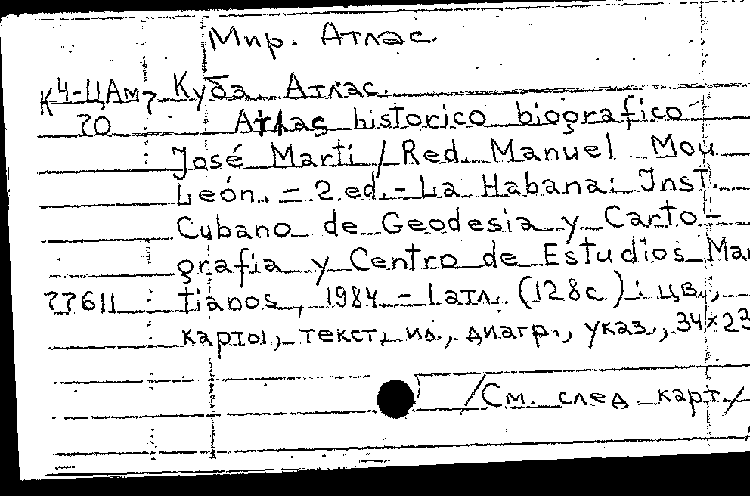 Мир. Атлас
К 4-ЦАм, Куба. Атлас.
70 Atlas historico biografico
José Marti / Red. Manuel Mou
León. - 2 ed. - La Habana: Inst.
Cubano de Geodesia y Carto-
grafia y Centro de Estudios Mar
77611 tianos, 1984. - 1 атл. (128 с): цв.,
карты, текст, ил., диагр., указ., 34×23
/См. след карт./